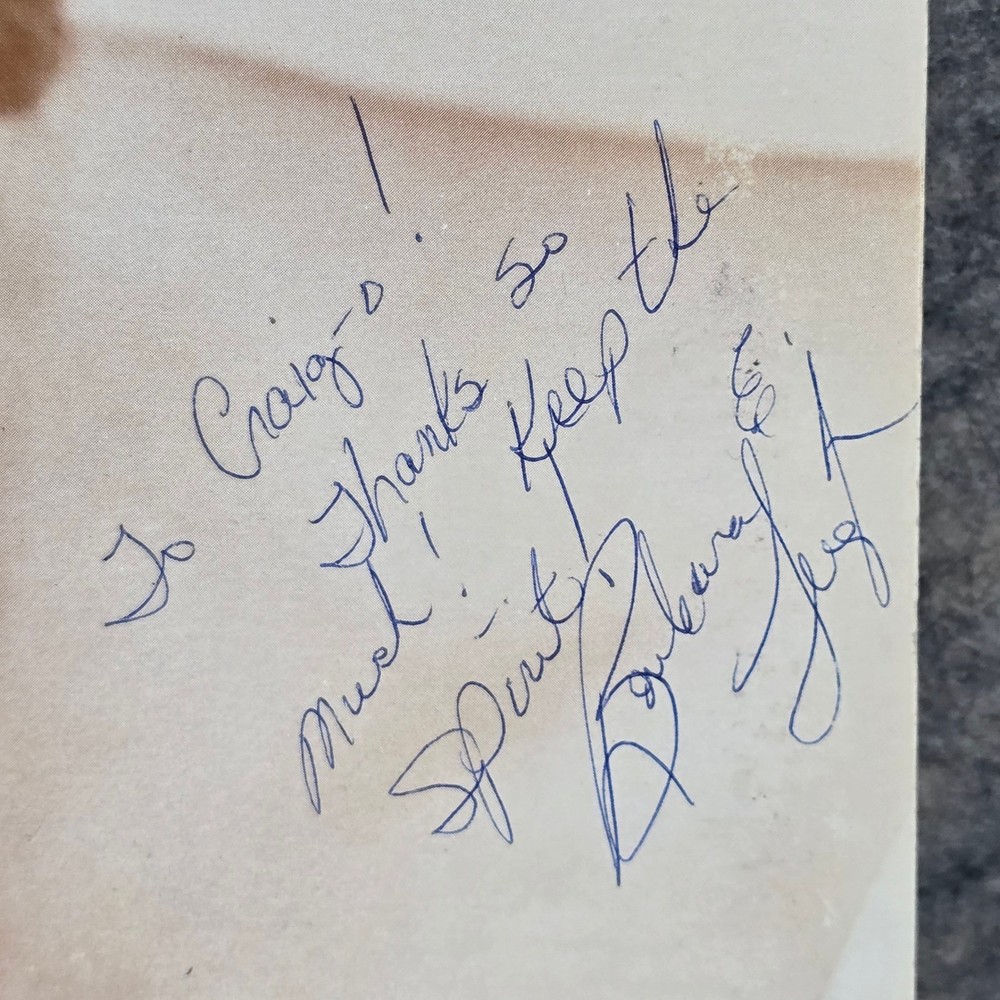 To Craig-O!
Thanks so
Much! Keep the
Spirit!
Barbara Leigh